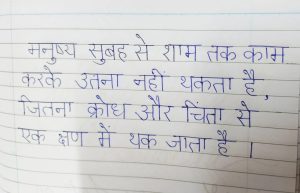 मनुष्य सुबह से शाम तक काम
करके उतना नहीं थकता है,
जितना क्रोध और चिंता से
एक क्षण में थक जाता है ।